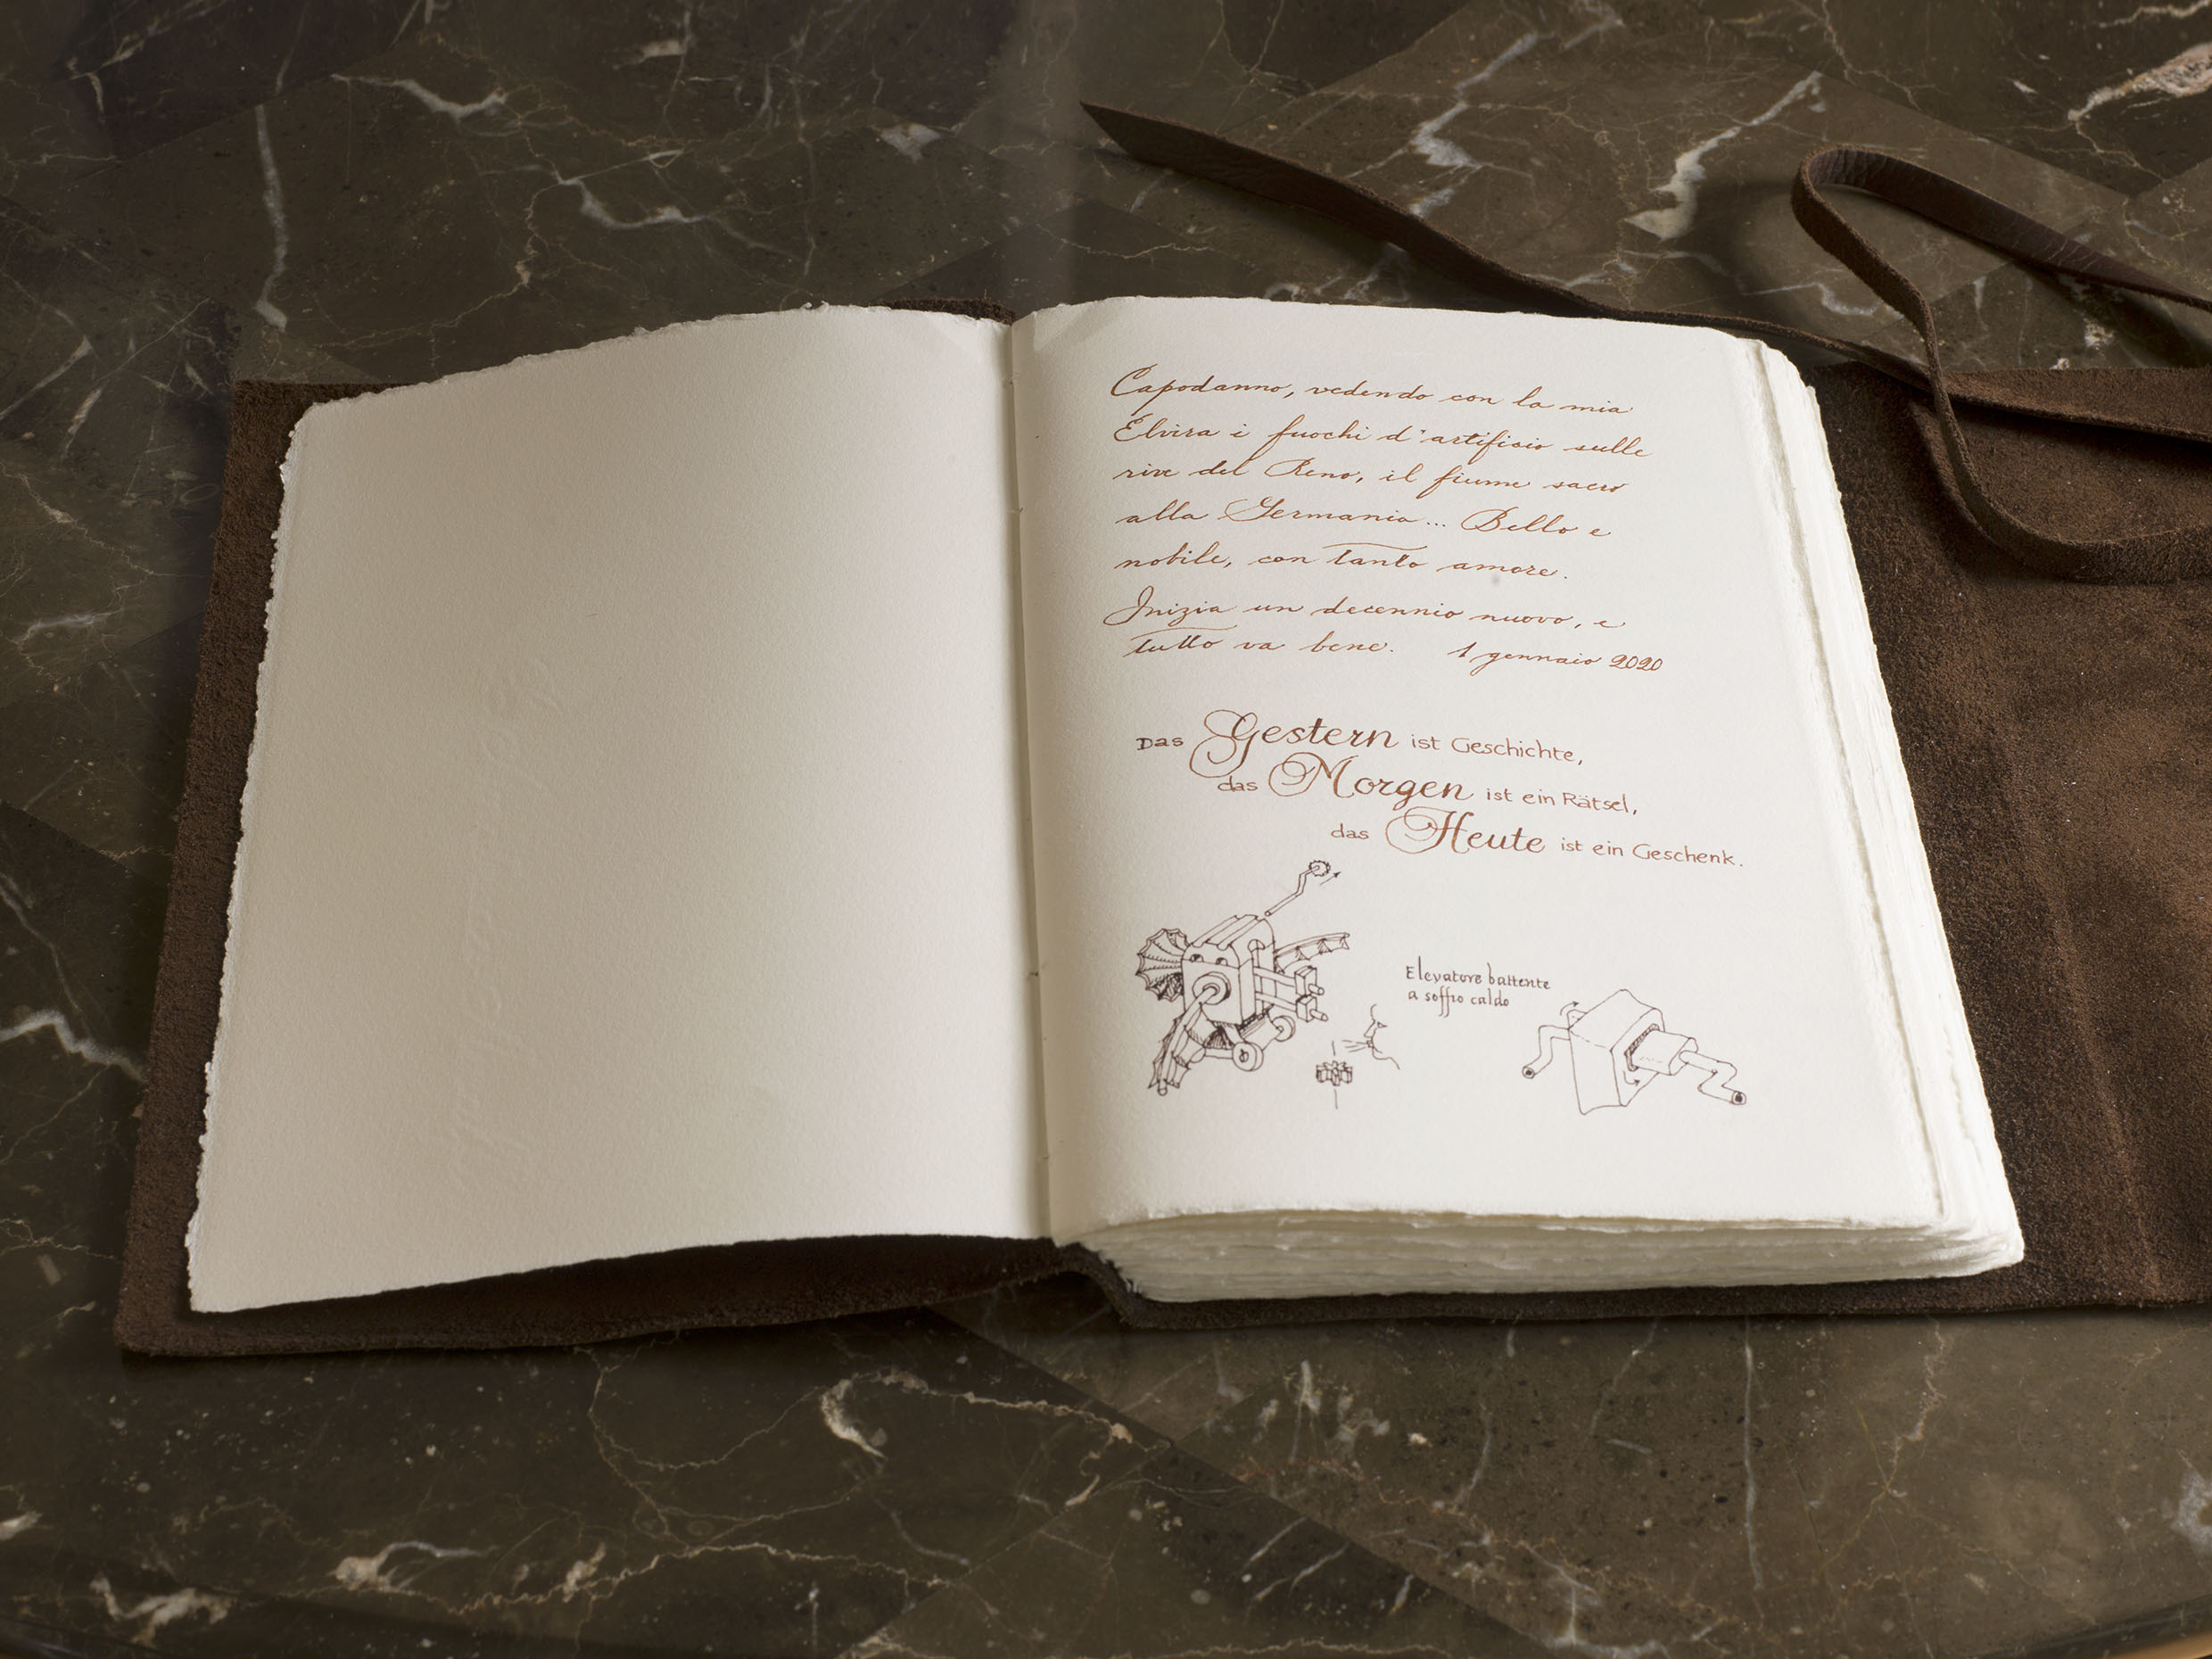 Capodanno, vedendo con la mia
Elvira i fuochi d'artificio sulle
rive del Reno, il fiume sacro
alla Germania... Bello e
nobile, con tanto amore.
Inizia un decennio nuovo, e
tutto va bene. 1 gennaio 2020
Das Gestern ist Geschichte,
das Morgen ist ein Rätsel,
das Heute ist ein Geschenk.
Elevatore battente
a soffio caldo